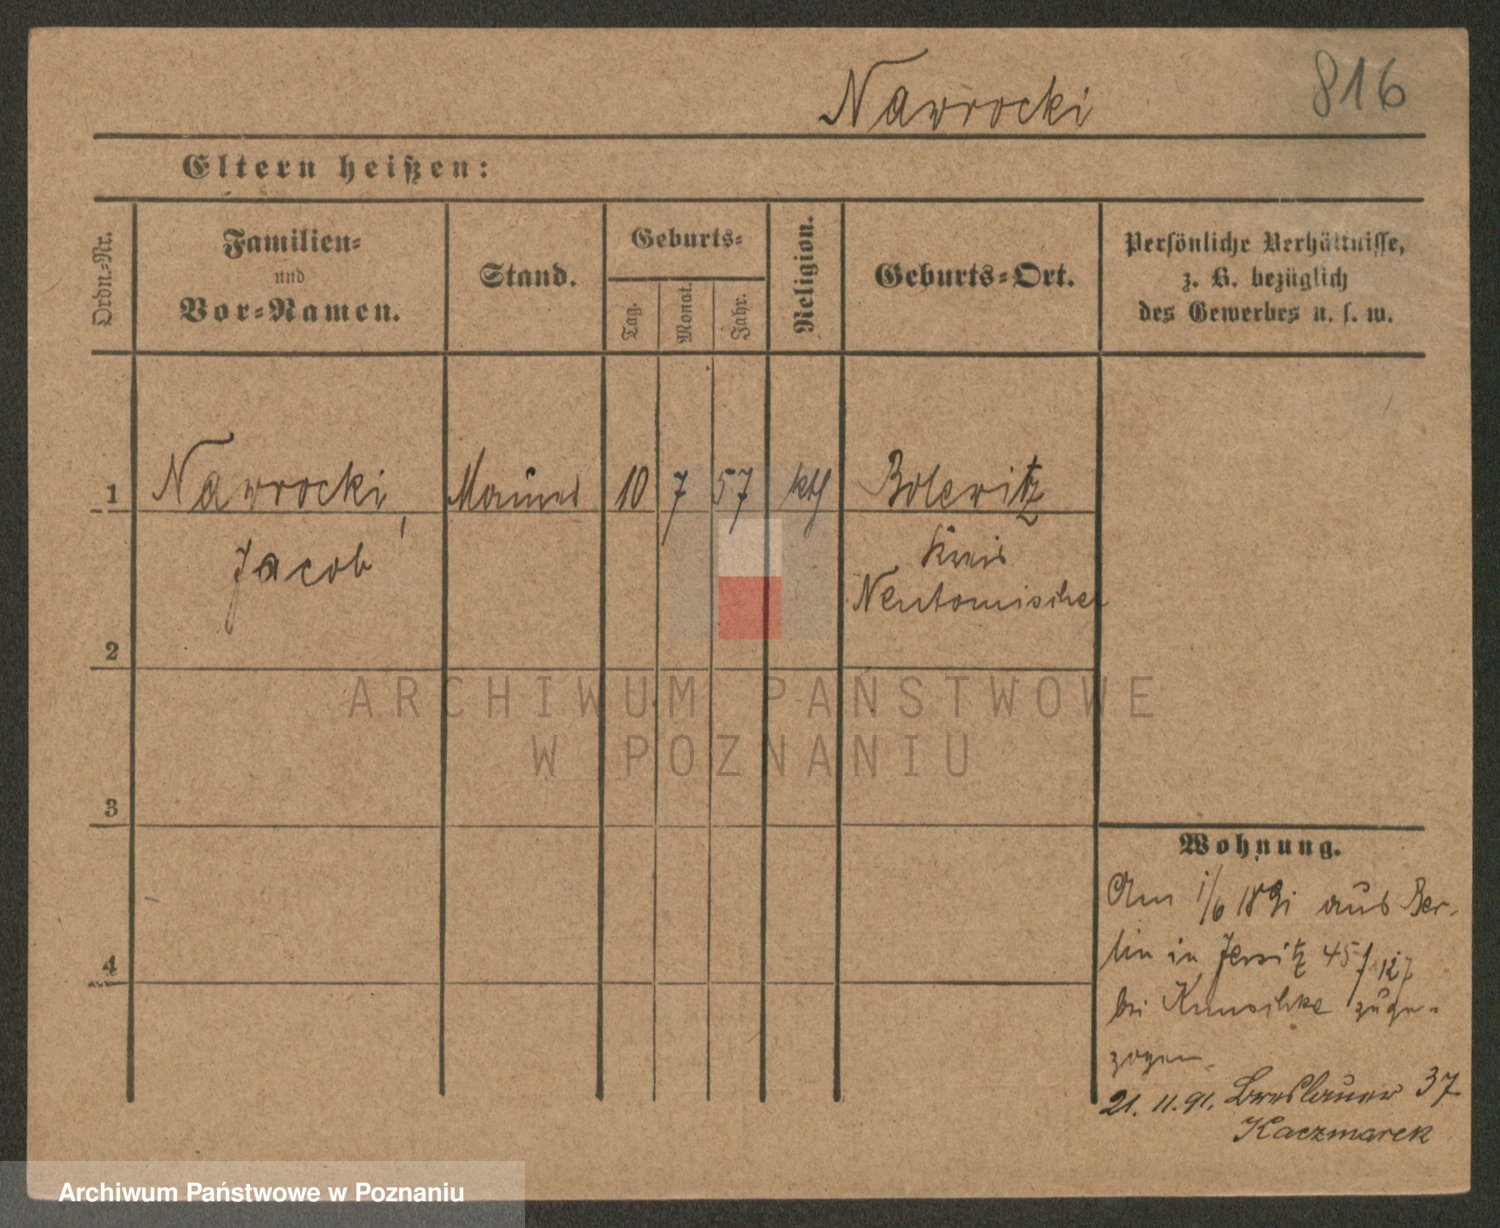 Nawrocki 816
Eltern heißen:
Ordn.-Nr.
Familien-
und
Vor-Namen.
Stand.
Geburts-
Tag.
Monat.
Jahr.
Religion.
Geburts-Ort.
Persönliche Verhältnisse,
z. B. bezüglich
des Gewerbes u. s. w.
1 Nawrocki, Maurer 10 7 57 kth Bolewitz
Jacob Kreis
Neutomischel
2
3
4
Wohnung.
Am 1/6 1891 aus Ber-
lin in Jersitz 45/127
bei zuge-
zogen.
21. 11. 91. Breslauer 37
Kaczmarek
ARCHIWUM PAŃSTWOWE
W POZNANIU
Archiwum Państwowe w Poznaniu